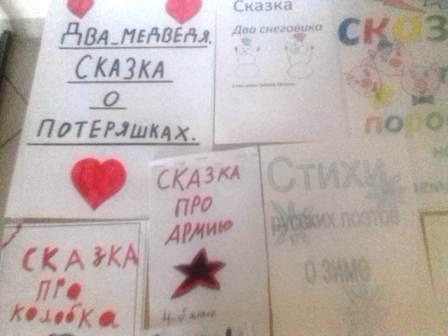 ДВА МЕДВЕДЯ.
СКАЗКА
О
ПОТЕРЯШКАХ.
Сказка
Два снеговика
СКАЗКА
ПРО
АРМИЮ
Стихи
русских поэтов
О ЗИМЕ
СКАЗКА
ПРО
КОЛОБКА